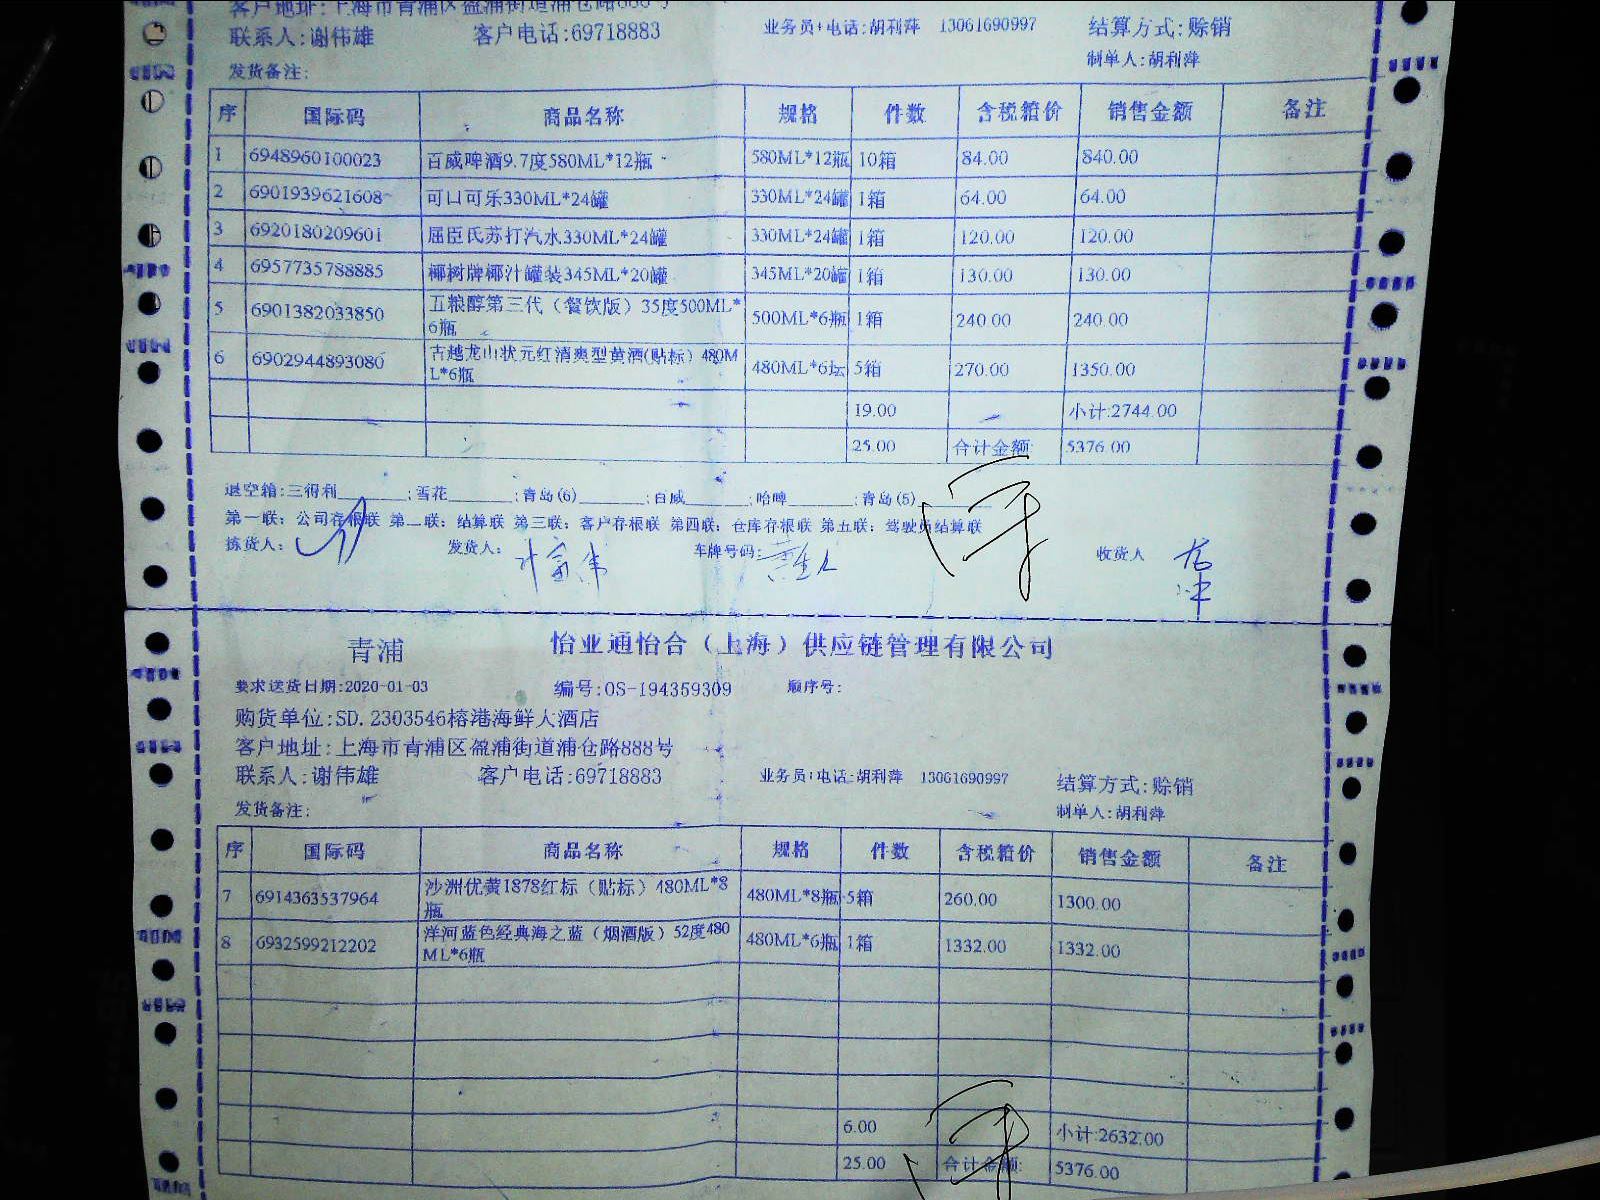 客户地址:上海市青浦区盈浦街道浦仓路888号
联系人:谢伟雄 客户电话:69718883 业务员+电话:胡利萍 13061690997 结算方式:赊销
发货备注: 制单人:胡利萍
序 国际码 商品名称 规格 件数 含税箱价 销售金额 备注
1 6948960100023 百威啤酒9.7度580ML*12瓶 580ML*12瓶 10箱 84.00 840.00
2 6901939621608 可口可乐330ML*24罐 330ML*24罐 1箱 64.00 64.00
3 6920180209601 屈臣氏苏打汽水330ML*24罐 330ML*24罐 1箱 120.00 120.00
4 6957735788885 椰树牌椰汁罐装345ML*20罐 345ML*20罐 1箱 130.00 130.00
5 6901382033850 五粮醇第三代（餐饮版）35度500ML*
6瓶 500ML*6瓶 1箱 240.00 240.00
6 6902944893080 古越龙山状元红清爽型黄酒(贴标）480M
L*6瓶 480ML*6坛 5箱 270.00 1350.00
19.00 小计:2744.00
25.00 合计金额: 5376.00
退空箱:三得利______;雪花______;青岛(6)______;百威______;哈啤______;青岛(5)______
第一联：公司存根联 第二联：结算联 第三联：客户存根联 第四联：仓库存根联 第五联：驾驶员结算联
拣货人: 发货人: 车牌号码: 收货人
青浦 怡亚通怡合（上海）供应链管理有限公司
要求送货日期:2020-01-03 编号:OS-194359309 顺序号:
购货单位:SD.2303546榕港海鲜大酒店
客户地址:上海市青浦区盈浦街道浦仓路888号
联系人:谢伟雄 客户电话:69718883 业务员+电话:胡利萍 13061690997 结算方式:赊销
发货备注: 制单人:胡利萍
序 国际码 商品名称 规格 件数 含税箱价 销售金额 备注
7 6914363537964 沙洲优黄1878红标（贴标）480ML*8
瓶 480ML*8瓶 5箱 260.00 1300.00
8 6932599212202 洋河蓝色经典海之蓝（烟酒版）52度480
ML*6瓶 480ML*6瓶 1箱 1332.00 1332.00
6.00 小计:2632.00
25.00 合计金额: 5376.00